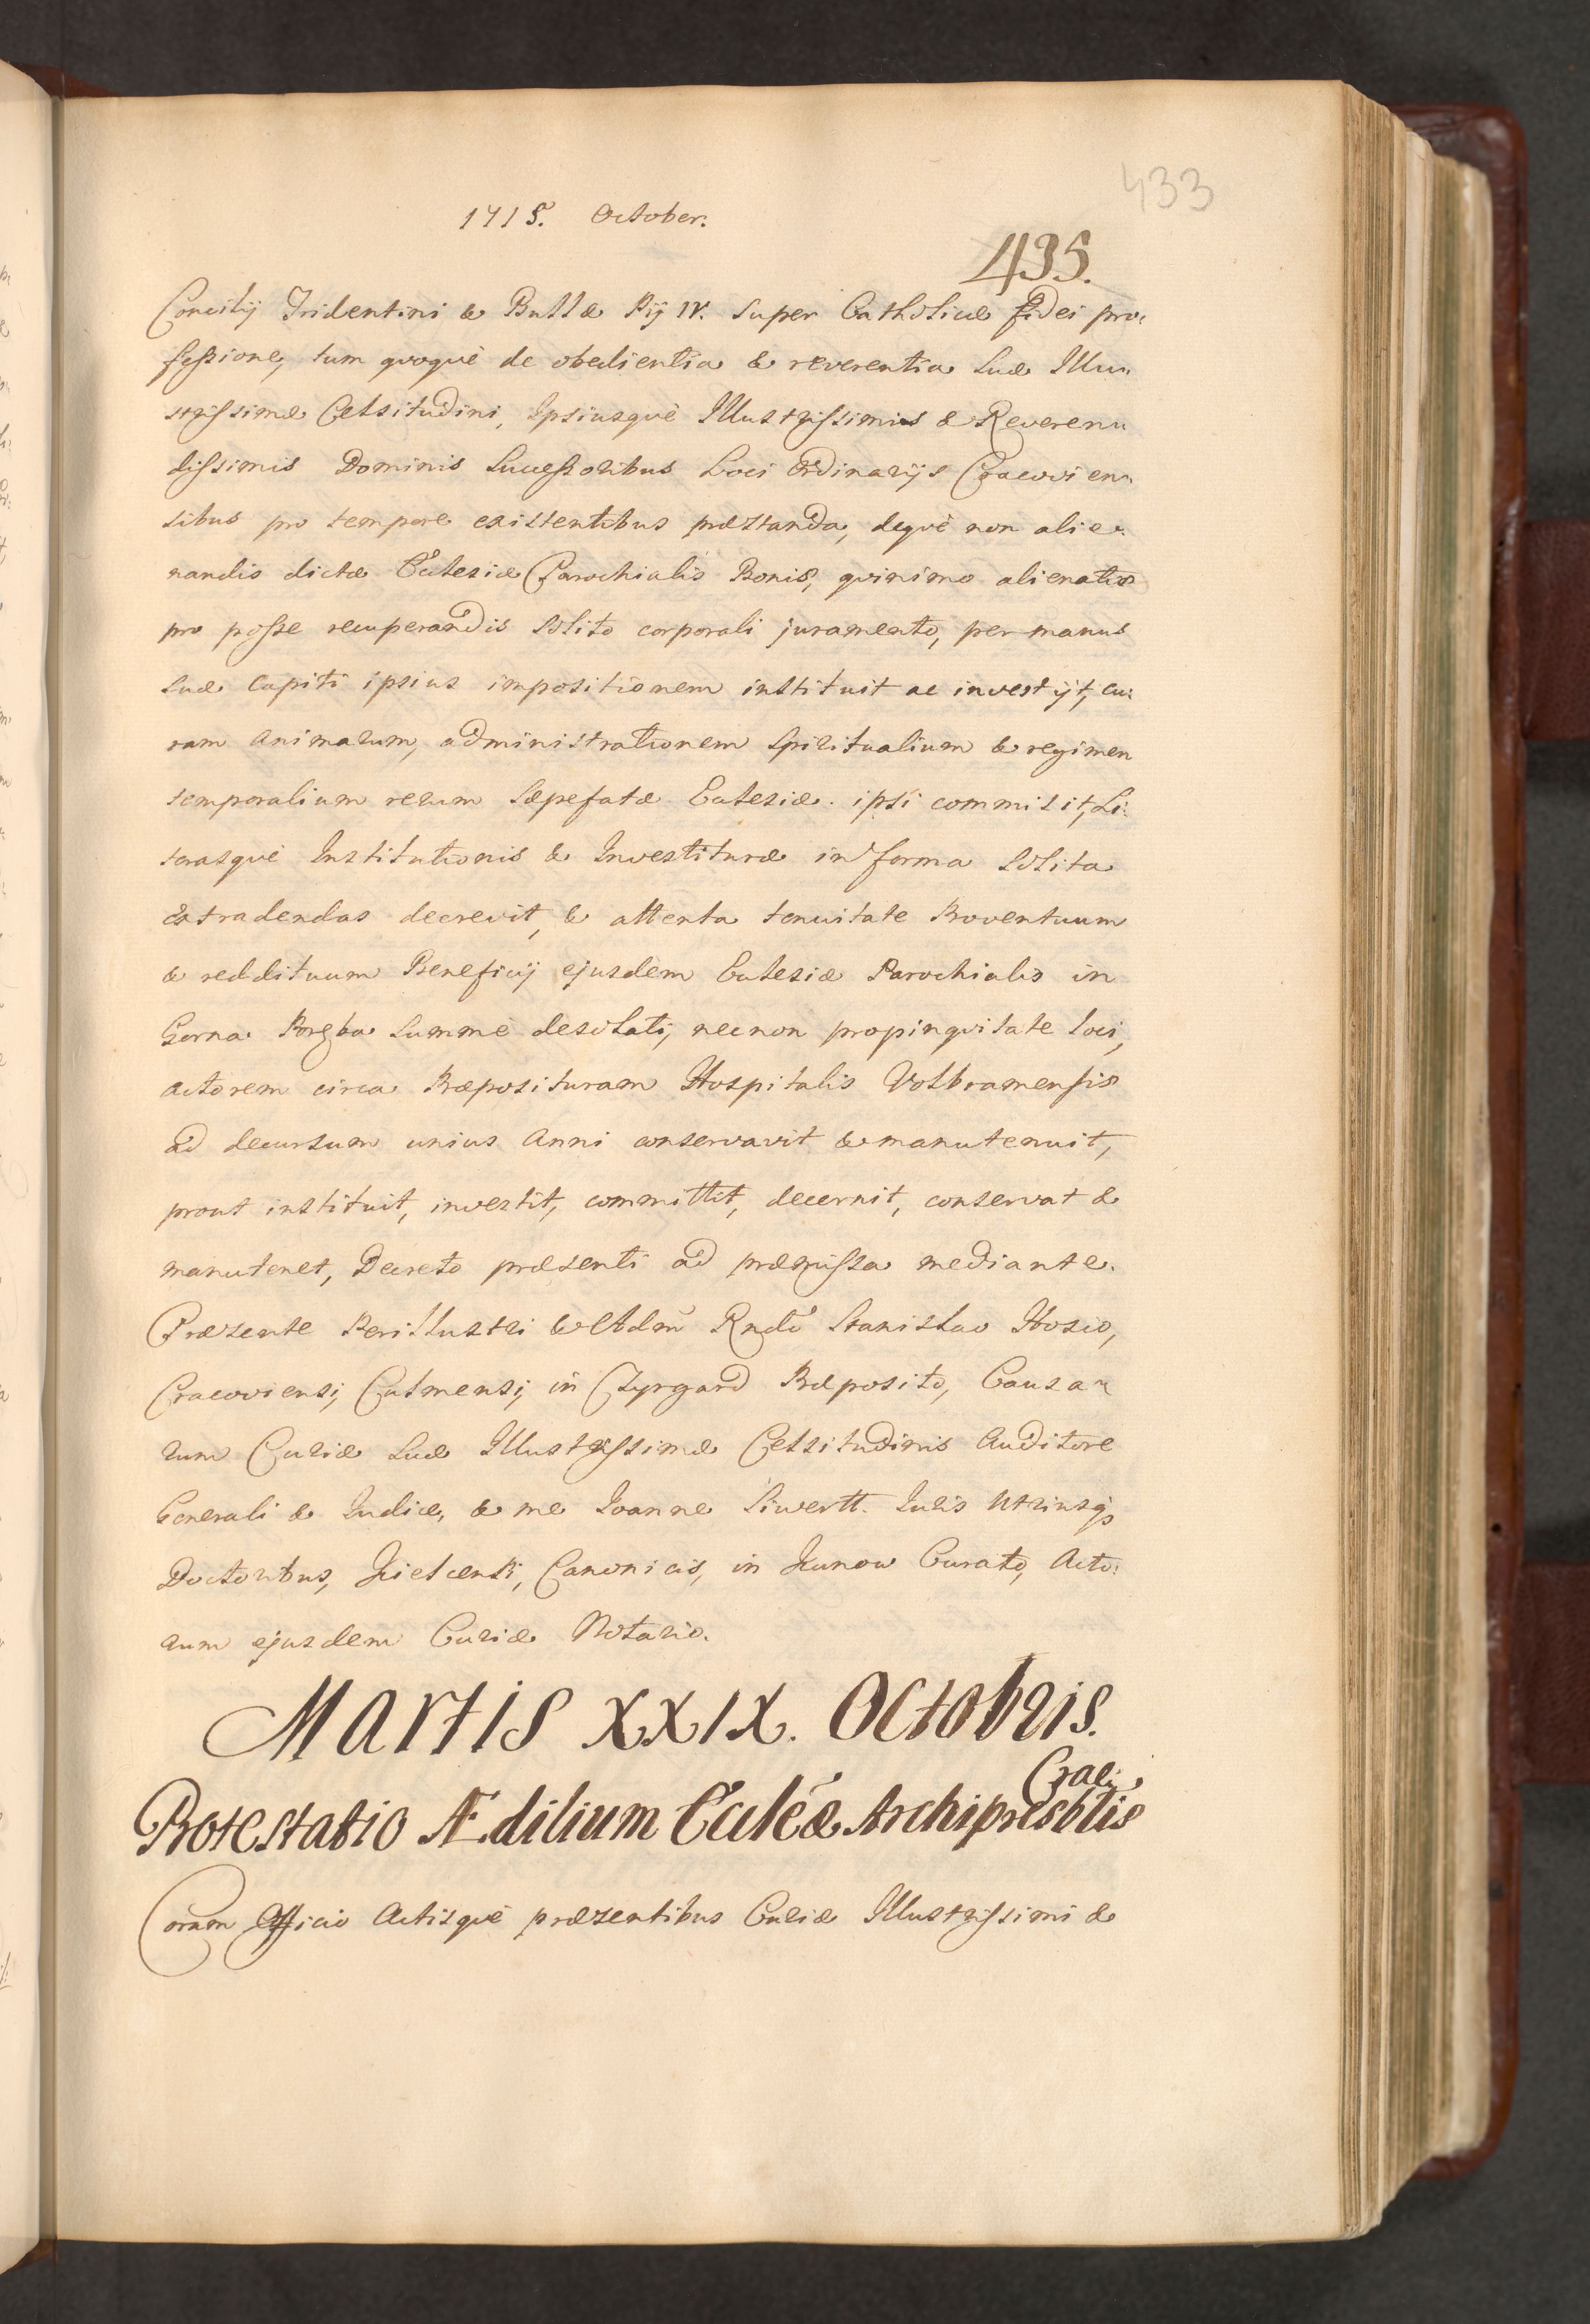 433
1715. October.
435.
Concilij Tridentini & Bullæ Pij IV. super Catholicæ fidei pro-
fessione, tum quoquè de obedientia & reverentia Suæ Illu-
strissimæ Celsitudini, Ipsiusquè Illustrissimis & Reveren-
dissimis Dominis Successoribus Loci Ordinarijs Cracovien-
sibus pro tempore existentibus præstanda, dequè non alie-
nandis dictæ Ecclesiæ Parochialis Bonis, quinimo alienatis
pro posse recuperandis solito corporali juramento, per manus
suæ capiti ipsius impositionem instituit ac investijt, cu-
ram animarum, administrationem spiritualium & regimen
temporalium rerum sæpefatæ Ecclesiæ ipsi commisit, Li-
terasquè Institutionis & Investituræ in forma solita
extradendas decrevit, & attenta tenuitate Proventuum
& reddituum Beneficij ejusdem Ecclesiæ Parochialis in
Gorna Poręba summè desolati, necnon propinquitate loci,
actorem circa Præposituram Hospitalis Volbramensis
ad decursum unius Anni conservavit & manutenuit,
prout instituit, investit, committit, decernit, conservat &
manutenet, Decreto præsenti ad præmissa mediante.
Præsente Perillustri & Adm̃ Rñdo Stanislao Hosio,
Cracoviensi, Culmensi, in Czyrgard Præposito, Causa-
rum Curiæ Suæ Illustrissimæ Celsitudinis Auditore
Generali & Iudice, & me Ioanne Siwertt Iuris Utriusq3
Doctoribus, Kielcensi, Canonicis, in Kunow Curato, Acto-
rum ejusdem Curiæ Notario.
Martis XXIX. Octobris.
Protestatio Ædilium Ecclẽæ Archipresbtlis Crac:
Coram Officio Actisquè præsentibus Curiæ Illustrissimi &